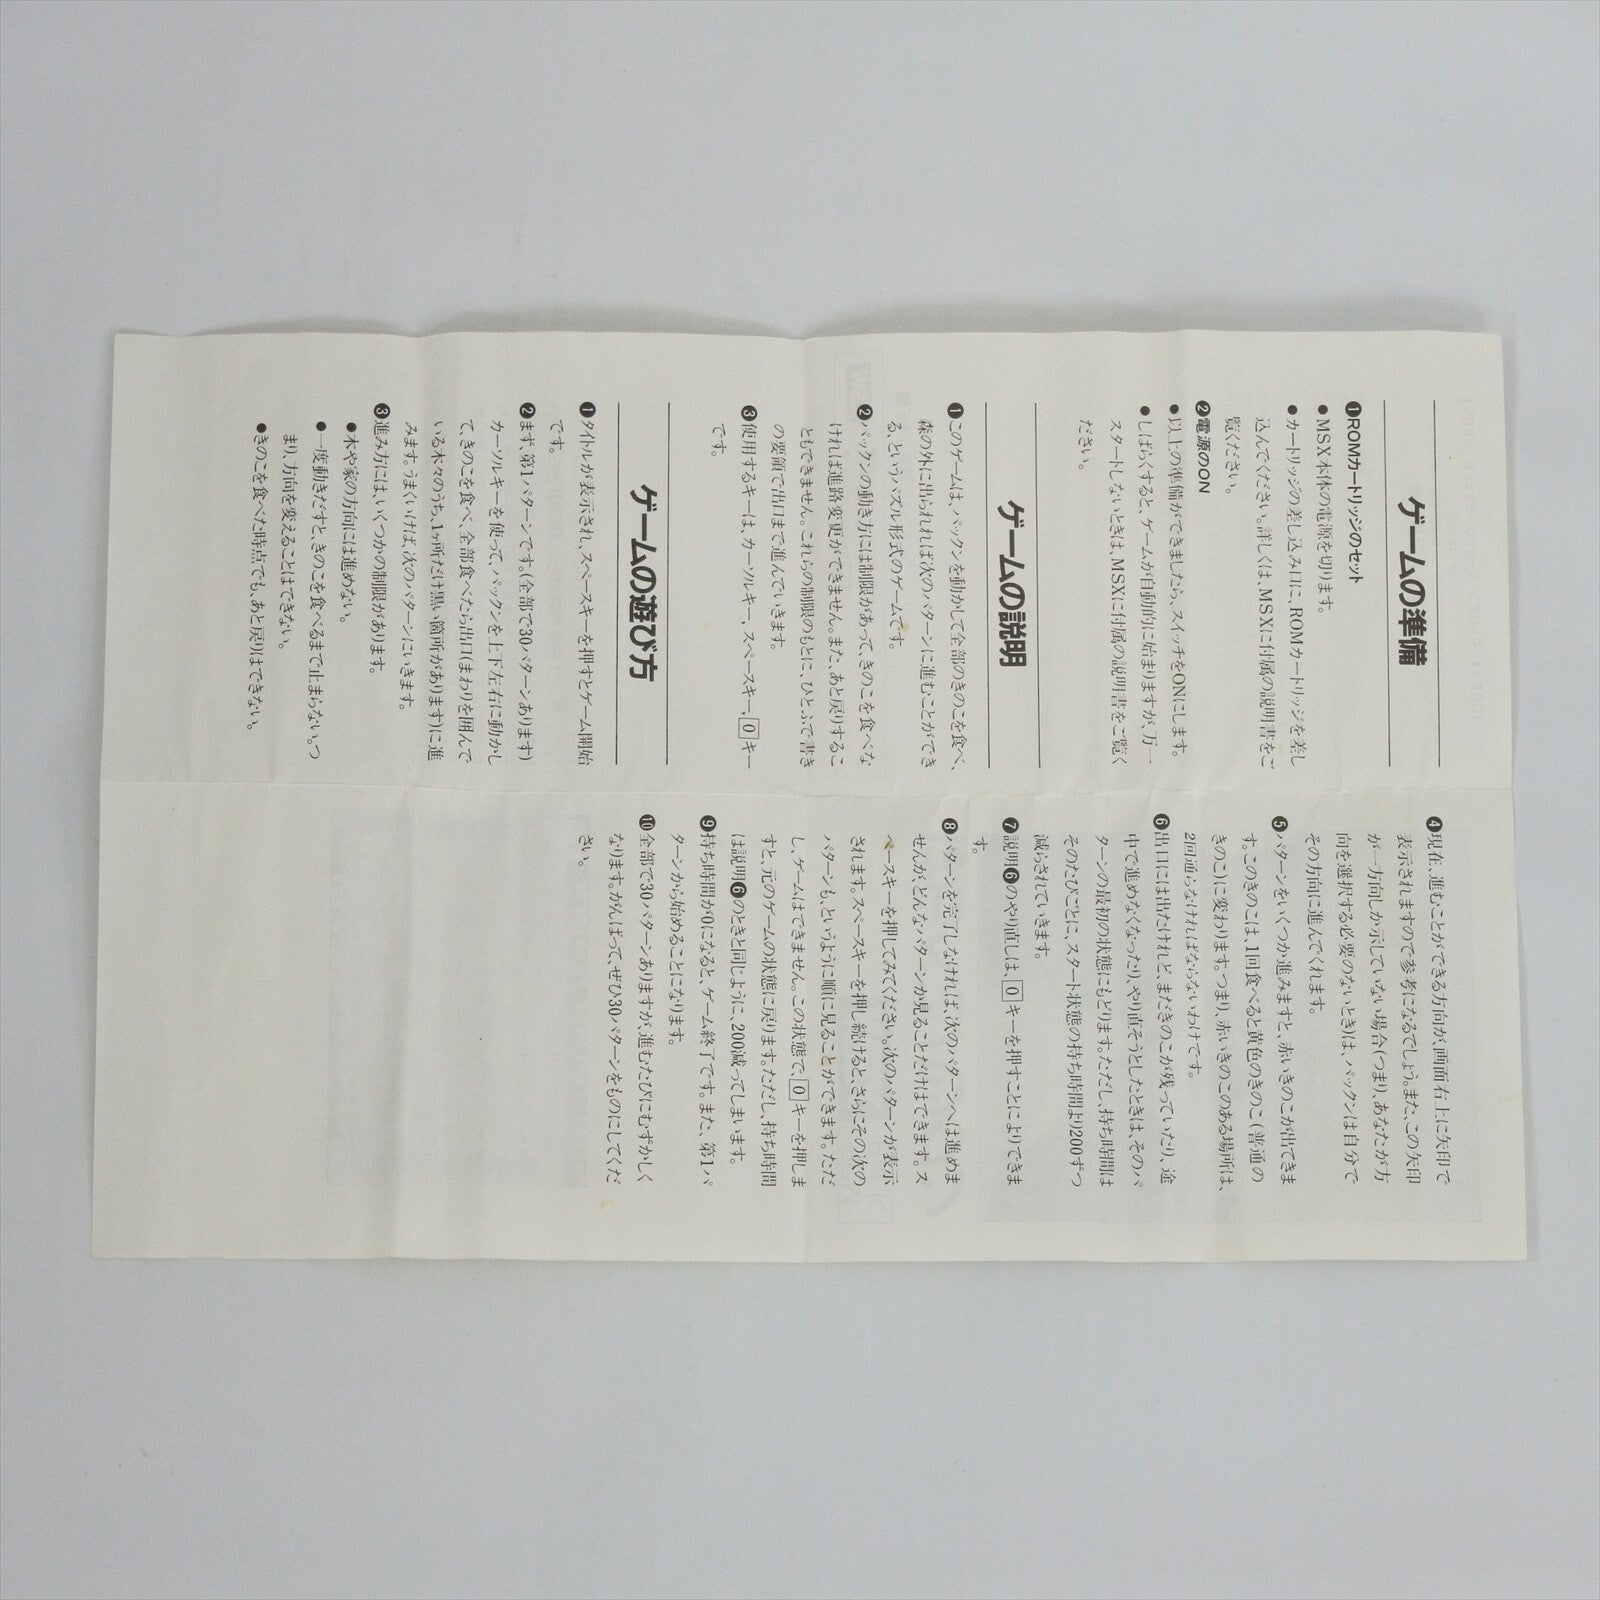 ゲームの準備
❶ROMカートリッジのセット
●MSX本体の電源を切ります。
●カートリッジの差し込み口に、ROMカートリッジを差し
込んでください。詳しくは、MSXに付属の説明書をご
覧ください。
❷電源のON
●以上の準備ができましたら、スイッチをONにします。
●しばらくすると、ゲームが自動的に始まりますが、万一
スタートしないときは、MSXに付属の説明書をご覧く
ださい。
ゲームの説明
❶このゲームは、パックンを動かして全部のきのこを食べ、
森の外に出られれば次のパターンに進むことができ
る、というパズル形式のゲームです。
❷パックンの動き方には制限があって、きのこを食べな
ければ進路変更ができません。また、あと戻りするこ
ともできません。これらの制限のもとに、ひとふで書き
の要領で出口まで進んでいきます。
❸使用するキーは、カーソルキー、スペースキー、0キー
です。
ゲームの遊び方
❶タイトルが表示され、スペースキーを押すとゲーム開始
です。
❷まず、第1パターンです。(全部で30パターンあります)
カーソルキーを使って、パックンを上下左右に動かし
て、きのこを食べ、全部食べたら出口(まわりを囲んで
いる木々のうち、1ヶ所だけ黒い箇所があります)に進
みます。うまくいけば、次のパターンにいきます。
❸進み方には、いくつかの制限があります。
●木や家の方向には進めない。
●一度動きだすと、きのこを食べるまで止まらない。つ
まり、方向を変えることはできない。
●きのこを食べた時点でも、あと戻りはできない。
❹現在、進むことができる方向が、画面右上に矢印で
表示されますので参考になるでしょう。また、この矢印
が一方向しか示していない場合(つまり、あなたが方
向を選択する必要のないとき)は、パックンは自分で
その方向に進んでくれます。
❺パターンをいくつか進みますと、赤いきのこが出てきま
す。このきのこは、1回食べると黄色のきのこ(普通の
きのこ)に変わります。つまり、赤いきのこのある場所は、
2回通らなければならないわけです。
❻出口には出たけれど、まだきのこが残っていたり、途
中で進めなくなったり、やり直そうとしたときは、そのパ
ターンの最初の状態にもどります。ただし、持ち時間は
そのたびごとに、スタート状態の持ち時間より200ずつ
減らされていきます。
❼説明❻のやり直しは、0キーを押すことによりできま
す。
❽パターンを完了しなければ、次のパターンへは進めま
せんが、どんなパターンか見ることだけはできます。ス
ペースキーを押してみてください。次のパターンが表示
されます。スペースキーを押し続けると、さらにその次の
パターンも、というように順に見ることができます。ただ
し、ゲームはできません。この状態で、0キーを押しま
すと、元のゲームの状態に戻ります。ただし、持ち時間
は説明❻のときと同じように、200減ってしまいます。
❾持ち時間が0になると、ゲーム終了です。また、第1パ
ターンから始めることになります。
❿全部で30パターンありますが、進むたびにむずかしく
なります。がんばって、ぜひ30パターンをものにしてくだ
さい。